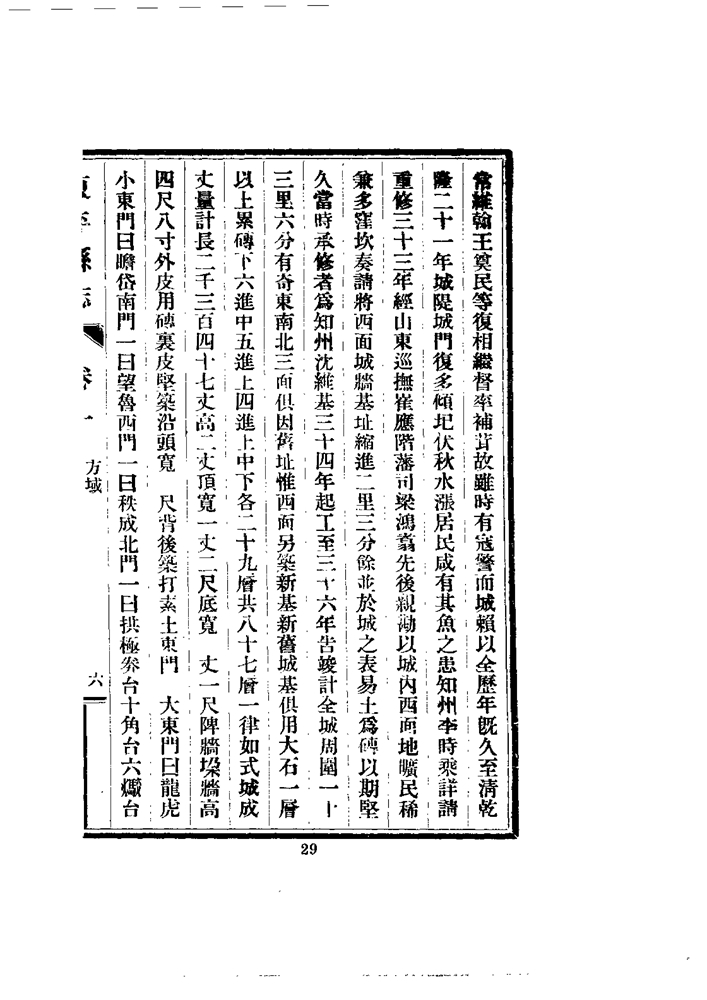 常維翰王奠民等復相繼督率補葺故雖時有寇警而城賴以全歷年既久至清乾
隆二十一年城隄城門復多傾圮伏秋水漲居民咸有其魚之患知州李時乘詳請
重修三十三年經山東巡撫崔應階藩司梁鴻翥先後親勘以城內西面地曠民稀
兼多窪坎奏請將西面城牆基址縮進二里三分餘並於城之表易土為磚以期堅
久當時承修者為知州沈維基三十四年起工至三十六年告竣計全城周圍一十
三里六分有奇東南北三面俱因舊址惟西面另築新基新舊城基俱用大石一層
以上累磚下六進中五進上四進上中下各二十九層共八十七層一律如式城成
丈量計長二千三百四十七丈高二丈頂寬一丈二尺底寬 丈一尺陴牆垛牆高
四尺八寸外皮用磚裏皮堅築沿頭寬 尺背後築打素土東門 大東門曰龍虎
小東門曰瞻岱南門一曰望魯西門一曰秩成北門一曰拱極券台十角台六墩台
縣志 卷一 方域 六
29